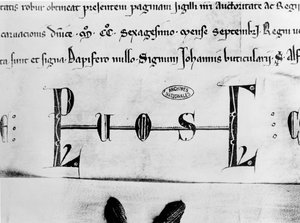 tatis robur obtineat presentem paginam sigilli nri auctoritate Ac Regij
carnacionis dnice . mº CCº Sexagesimo . mense Septembr Regni u
ta sunt et signa . Dapifero nullo . Signum Iohannis buticularij . S . Alf
ARCHIVES NATIONALES